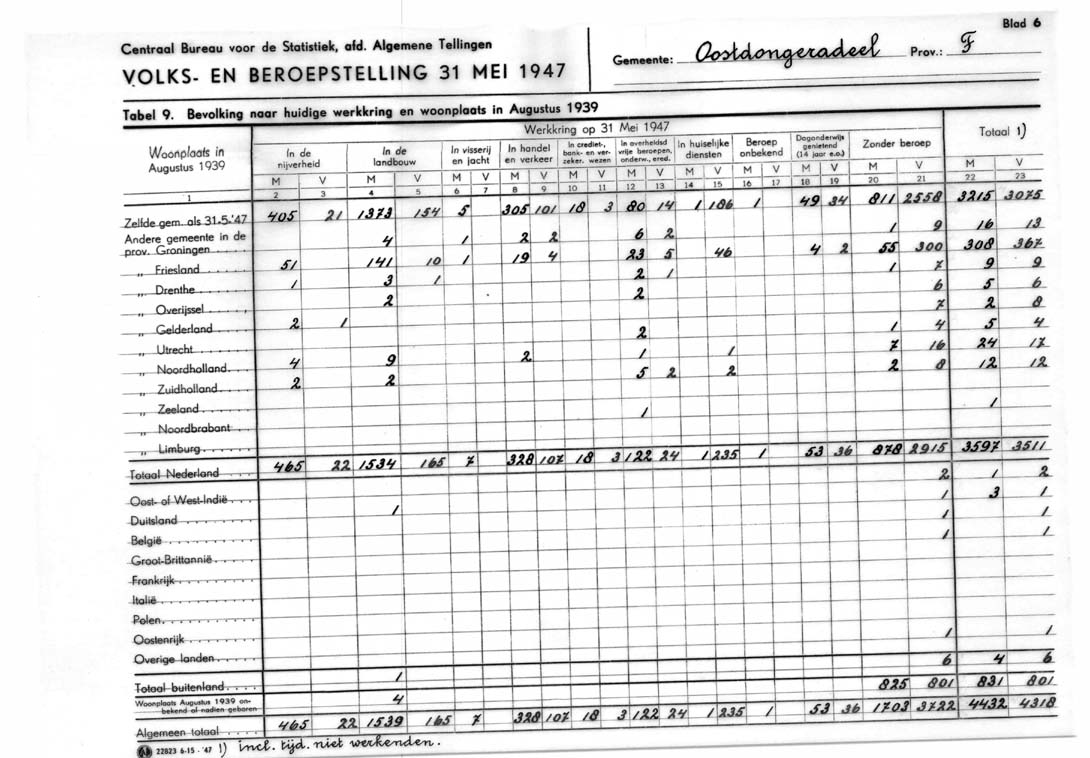 Blad 6
Centraal Bureau voor de Statistiek, afd. Algemene Tellingen
Gemeente: Oostdongeradeel Prov.: F
VOLKS- EN BEROEPSTELLING 31 MEI 1947
Tabel 9. Bevolking naar huidige werkkring en woonplaats in Augustus 1939
Woonplaats in Augustus 1939 Werkkring op 31 Mei 1947 Totaal 1)
In de nijverheid In de landbouw In visserij en jacht In handel en verkeer In crediet-, bank- en verzeker. wezen In overheidsd vrije beroepen, onderw., ered. In huiselijke diensten Beroep onbekend Dagonderwijs genietend (14 jaar e.o.) Zonder beroep
M V M V M V M V M V M V M V M V M V M V M V
1 2 3 4 5 6 7 8 9 10 11 12 13 14 15 16 17 18 19 20 21 22 23
Zelfde gem. als 31.5.'47 405 21 1373 154 5 305 101 18 3 80 14 1 186 1 49 34 811 2558 3215 3075
Andere gemeente in de
prov. Groningen 4 1 2 2 6 2 1 9 16 13
„ Friesland 51 141 10 1 19 4 23 5 46 4 2 55 300 308 367
„ Drenthe 1 3 1 2 1 1 7 9 9
„ Overijssel 2 2 6 5 6
„ Gelderland 2 1 7 2 8
„ Utrecht 2 1 4 5 4
„ Noordholland 4 9 2 1 1 7 16 24 17
„ Zuidholland 2 2 5 2 2 2 8 12 12
„ Zeeland
„ Noordbrabant 1 1
„ Limburg
Totaal Nederland 465 22 1534 165 7 328 107 18 3 122 24 1 235 1 53 36 878 2915 3597 3511
Oost- of West-Indië 2 1 2
Duitsland 1 1 3 1
België 1 1
Groot-Brittannië 1 1
Frankrijk
Italië
Polen
Oostenrijk
Overige landen 1 1
Totaal buitenland 1 6 4 6
Woonplaats Augustus 1939 onbekend of nadien geboren 4 825 801 831 801
Algemeen totaal 465 22 1539 165 7 328 107 18 3 122 24 1 235 1 53 36 1703 3722 4432 4318
22823 6-15-'47 1) incl. tijd. niet werkenden.